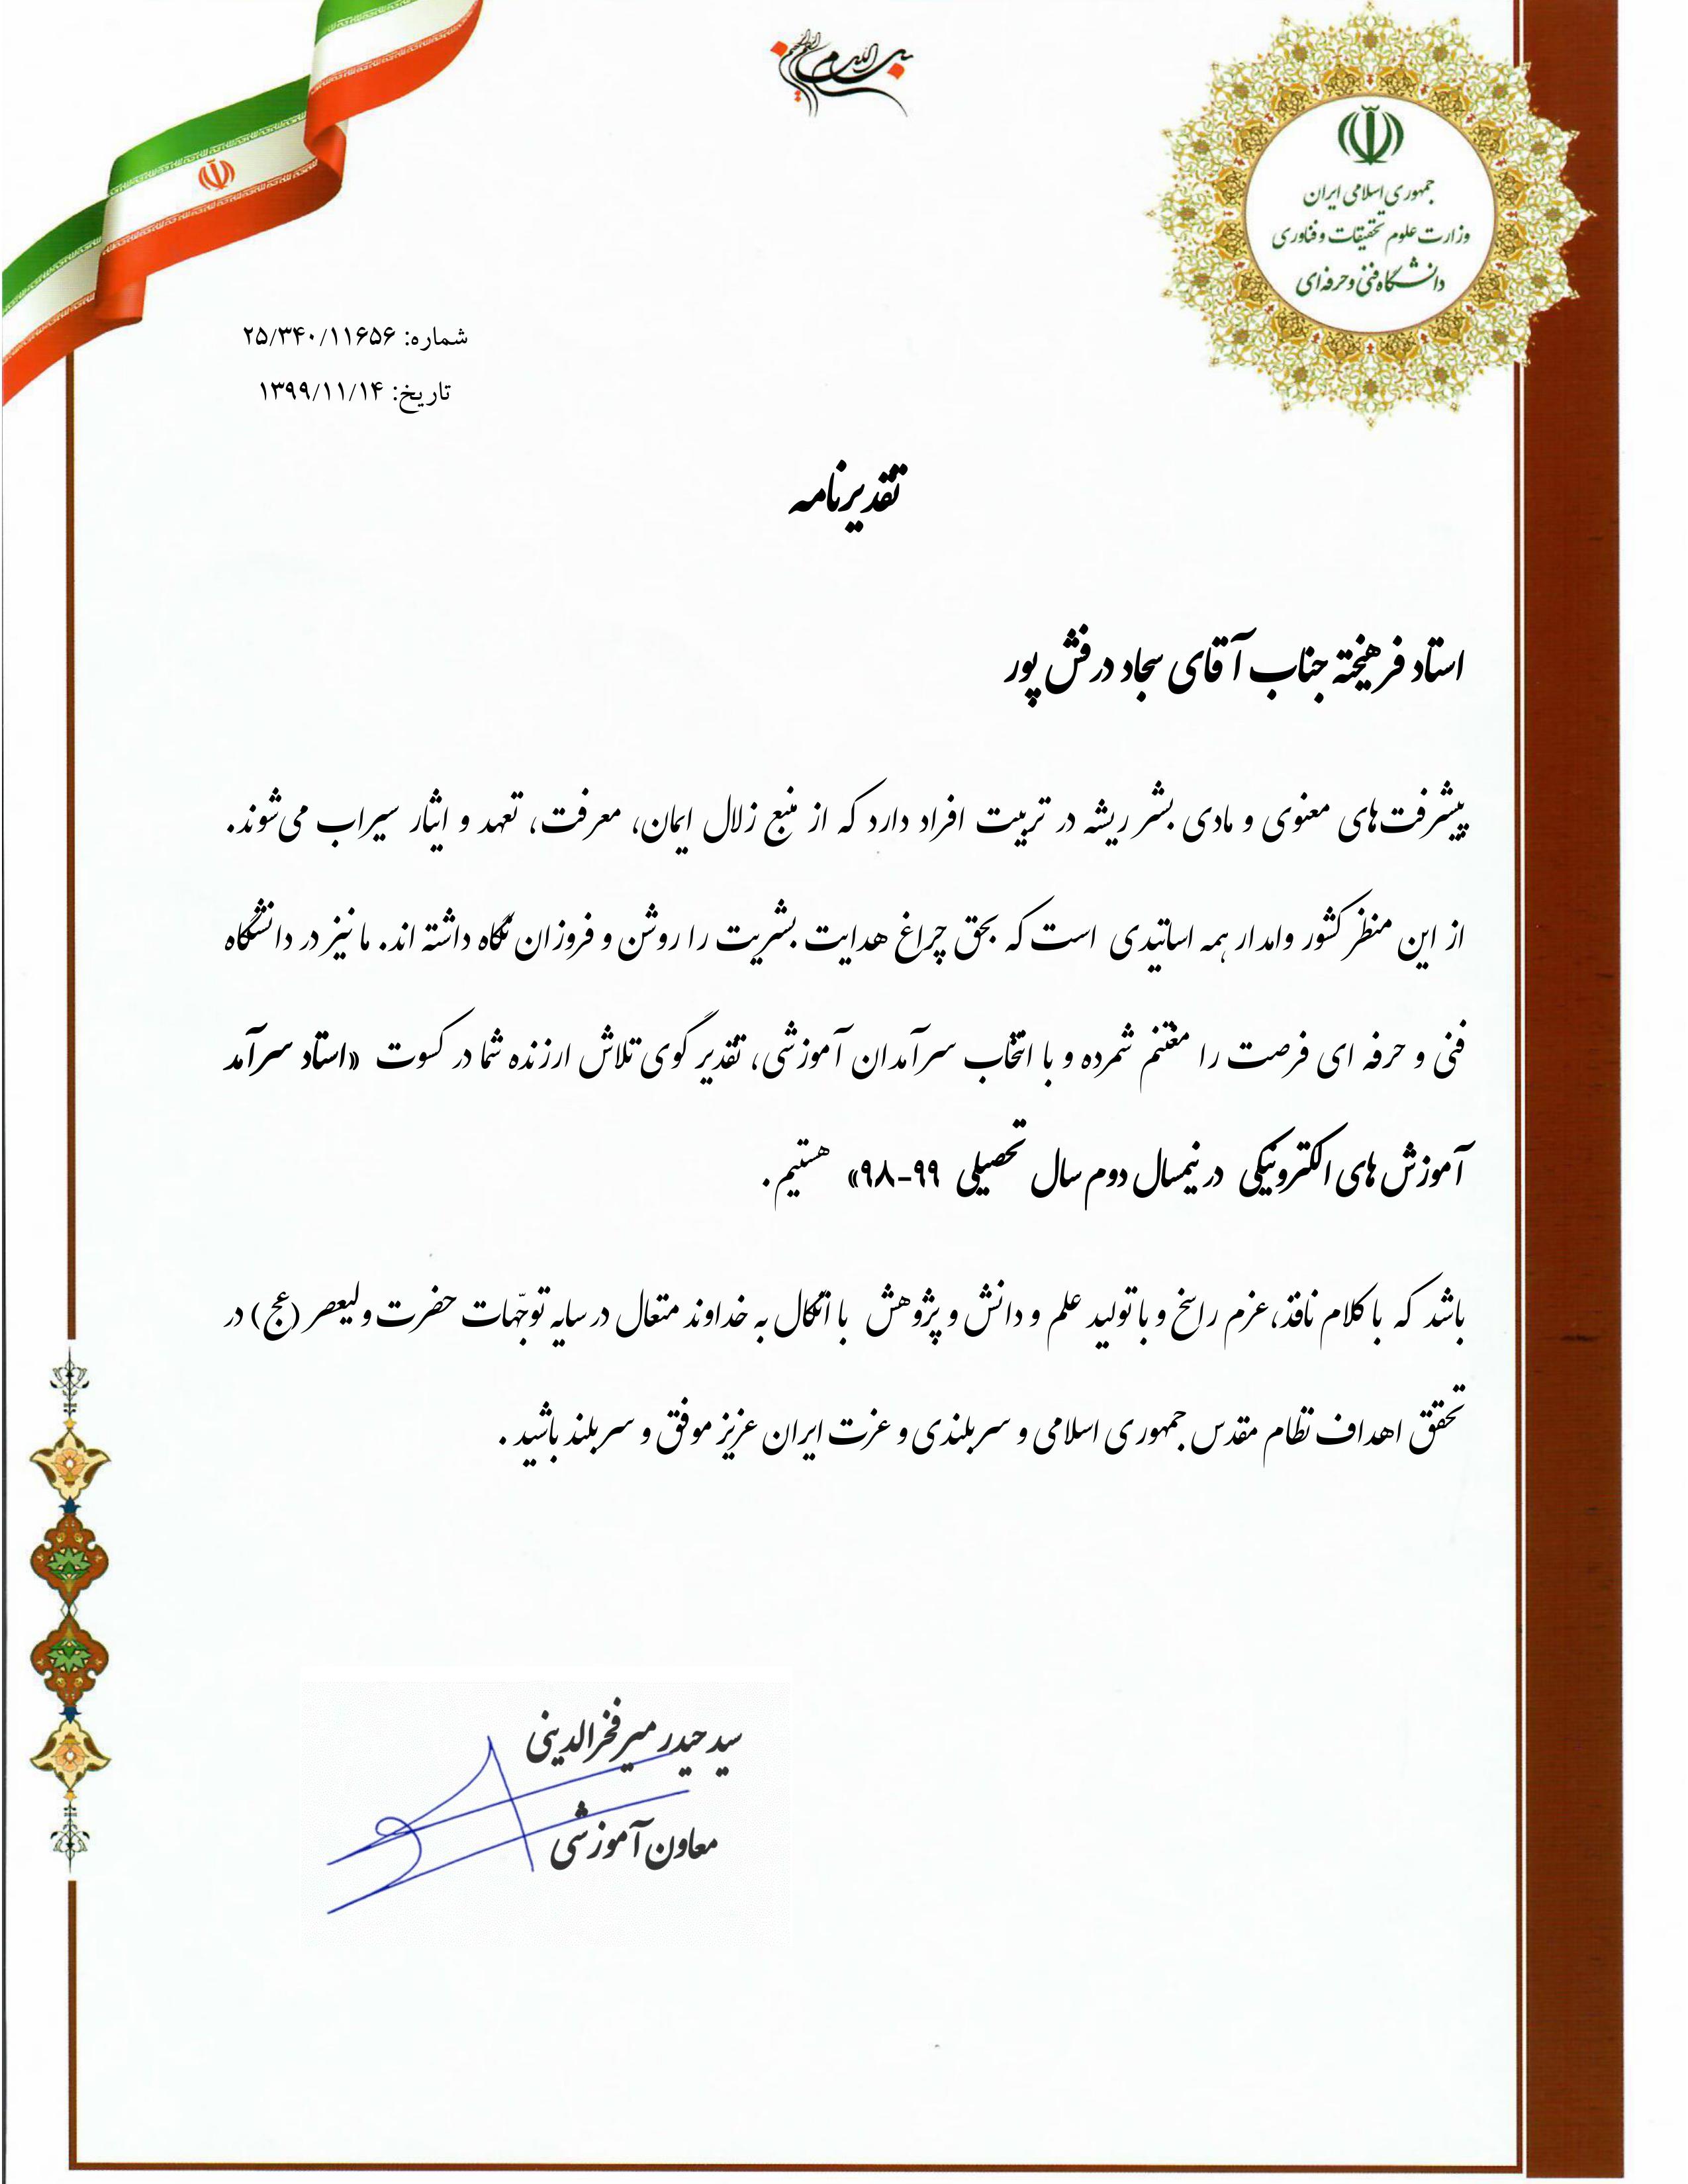 بسم الله الرحمن الرحیم
جمهوری اسلامی ایران
وزارت علوم تحقیقات و فناوری
دانشگاه فنی و حرفه‌ای
شماره: ۲۵/۳۴۰/۱۱۶۵۶
تاریخ: ۱۳۹۹/۱۱/۱۴
تقدیرنامه
استاد فرهیخته جناب آقای سجاد درفش پور
پیشرفت‌های معنوی و مادی بشر ریشه در تربیت افراد دارد که از منبع زلال ایمان، معرفت، تعهد و ایثار سیراب می‌شوند.
از این منظر کشور وامدار همه اساتیدی است که بحق چراغ هدایت بشریت را روشن و فروزان نگاه داشته اند. ما نیز در دانشگاه
فنی و حرفه ای فرصت را مغتنم شمرده و با انتخاب سرآمدان آموزشی، تقدیر گوی تلاش ارزنده شما در کسوت «استاد سرآمد
آموزش های الکترونیکی در نیمسال دوم سال تحصیلی ۹۹-۹۸» هستیم.
باشد که با کلام نافذ، عزم راسخ و با تولید علم و دانش و پژوهش با اتکال به خداوند متعال در سایه توجّهات حضرت ولیعصر (عج) در
تحقق اهداف نظام مقدس جمهوری اسلامی و سربلندی و عزت ایران عزیز موفق و سربلند باشید.
سید حیدر میرفخرالدینی
معاون آموزشی